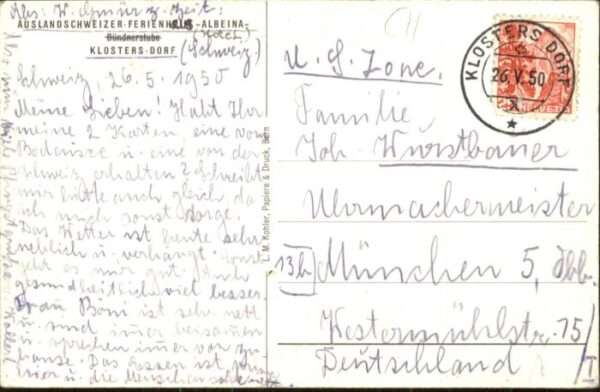 Abs: W. z. Zeit:
AUSLANDSCHWEIZER-FERIENHEIM -ALBEINA-
Bündnerstube
KLOSTERS-DORF (Schweiz)
Schweiz, 26.5.1950
Meine Lieben! Habt Ihr
meine 2 Karten, eine vom
Bodensee u. eine von der
Schweiz erhalten? Schreibt
mir bitte auch gleich, da
ich mich sonst sorge.
Das Wetter ist heute sehr
neblich u. verhängt. Sonst
geht es mir gut. Auch
gesundheitlich viel besser.
Frau Böni ist sehr nett
u. sind immer beisammen
u. sprechen immer von zu
hause. Das Essen ist
hier u. die Menschen
L. M. Kohler, Papiere & Druck, Bern
KLOSTERS DORF
26.V.50
HELVETIA
U. S. Zone.
Familie
Joh. Wurstbauer
Uhrmachermeister
13b München 5, Obb.
Westermühlstr. 15/I
Deutschland